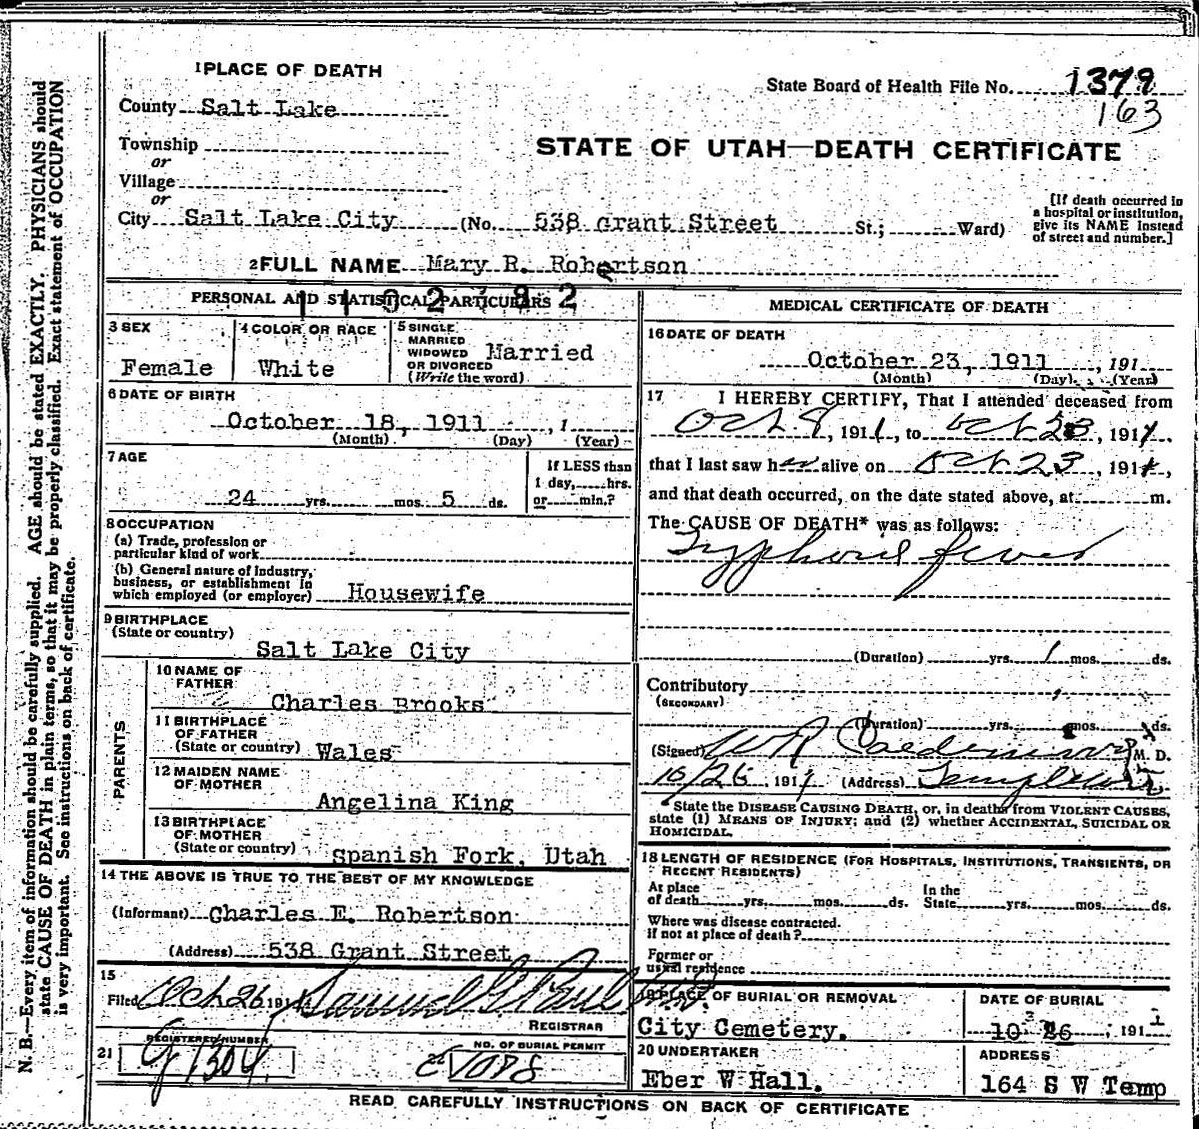 1 PLACE OF DEATH
State Board of Health File No. 1379
163
County Salt Lake
STATE OF UTAH—DEATH CERTIFICATE
Township
or
Village
or
City Salt Lake City (No. 538 Grant Street St.; Ward)
[If death occurred in
a hospital or institution,
give its NAME instead
of street and number.]
2 FULL NAME Mary R. Robertson
PERSONAL AND STATISTICAL PARTICULARS
3 SEX
Female
4 COLOR OR RACE
White
5 SINGLE
MARRIED
WIDOWED
OR DIVORCED
(Write the word)
Married
6 DATE OF BIRTH
October 18, 1911 , 1
(Month) (Day) (Year)
7 AGE
24 yrs. mos. 5 ds.
If LESS than
1 day, hrs.
or min.?
8 OCCUPATION
(a) Trade, profession or
particular kind of work
(b) General nature of industry,
business, or establishment in
which employed (or employer) Housewife
9 BIRTHPLACE
(State or country)
Salt Lake City
PARENTS
10 NAME OF
FATHER
Charles Brooks
11 BIRTHPLACE
OF FATHER
(State or country) Wales
12 MAIDEN NAME
OF MOTHER
Angelina King
13 BIRTHPLACE
OF MOTHER
(State or country) Spanish Fork, Utah
14 THE ABOVE IS TRUE TO THE BEST OF MY KNOWLEDGE
(Informant) Charles E. Robertson
(Address) 538 Grant Street
15
Filed Oct 26 191 Samuel G Paul
REGISTRAR
21
REGISTERED NUMBER
G1304
NO. OF BURIAL PERMIT
MEDICAL CERTIFICATE OF DEATH
16 DATE OF DEATH
October 23, 1911 , 191
(Month) (Day) (Year)
17 I HEREBY CERTIFY, That I attended deceased from
Oct 8, 1911, to Oct 23, 1911.
that I last saw her alive on Oct 23, 1911,
and that death occurred, on the date stated above, at m.
The CAUSE OF DEATH* was as follows:
Typhoid fever
(Duration) yrs. 1 mos. ds.
Contributory
(SECONDARY)
(Duration) yrs. mos. ds.
(Signed) M. D.
10/26 1911 (Address)
State the DISEASE CAUSING DEATH, or, in deaths from VIOLENT CAUSES,
state (1) MEANS OF INJURY; and (2) whether ACCIDENTAL, SUICIDAL OR
HOMICIDAL.
18 LENGTH OF RESIDENCE (FOR HOSPITALS, INSTITUTIONS, TRANSIENTS, OR
RECENT RESIDENTS)
At place
of death yrs. mos. ds.
In the
State yrs. mos. ds.
Where was disease contracted.
if not at place of death?
Former or
usual residence
19 PLACE OF BURIAL OR REMOVAL
City Cemetery.
DATE OF BURIAL
10 26 , 1911
20 UNDERTAKER
Eber W Hall.
ADDRESS
164 S W Temp
READ CAREFULLY INSTRUCTIONS ON BACK OF CERTIFICATE
N. B.—Every item of information should be carefully supplied. AGE should be stated EXACTLY. PHYSICIANS should
state CAUSE OF DEATH in plain terms, so that it may be properly classified. Exact statement of OCCUPATION
is very important. See instructions on back of certificate.